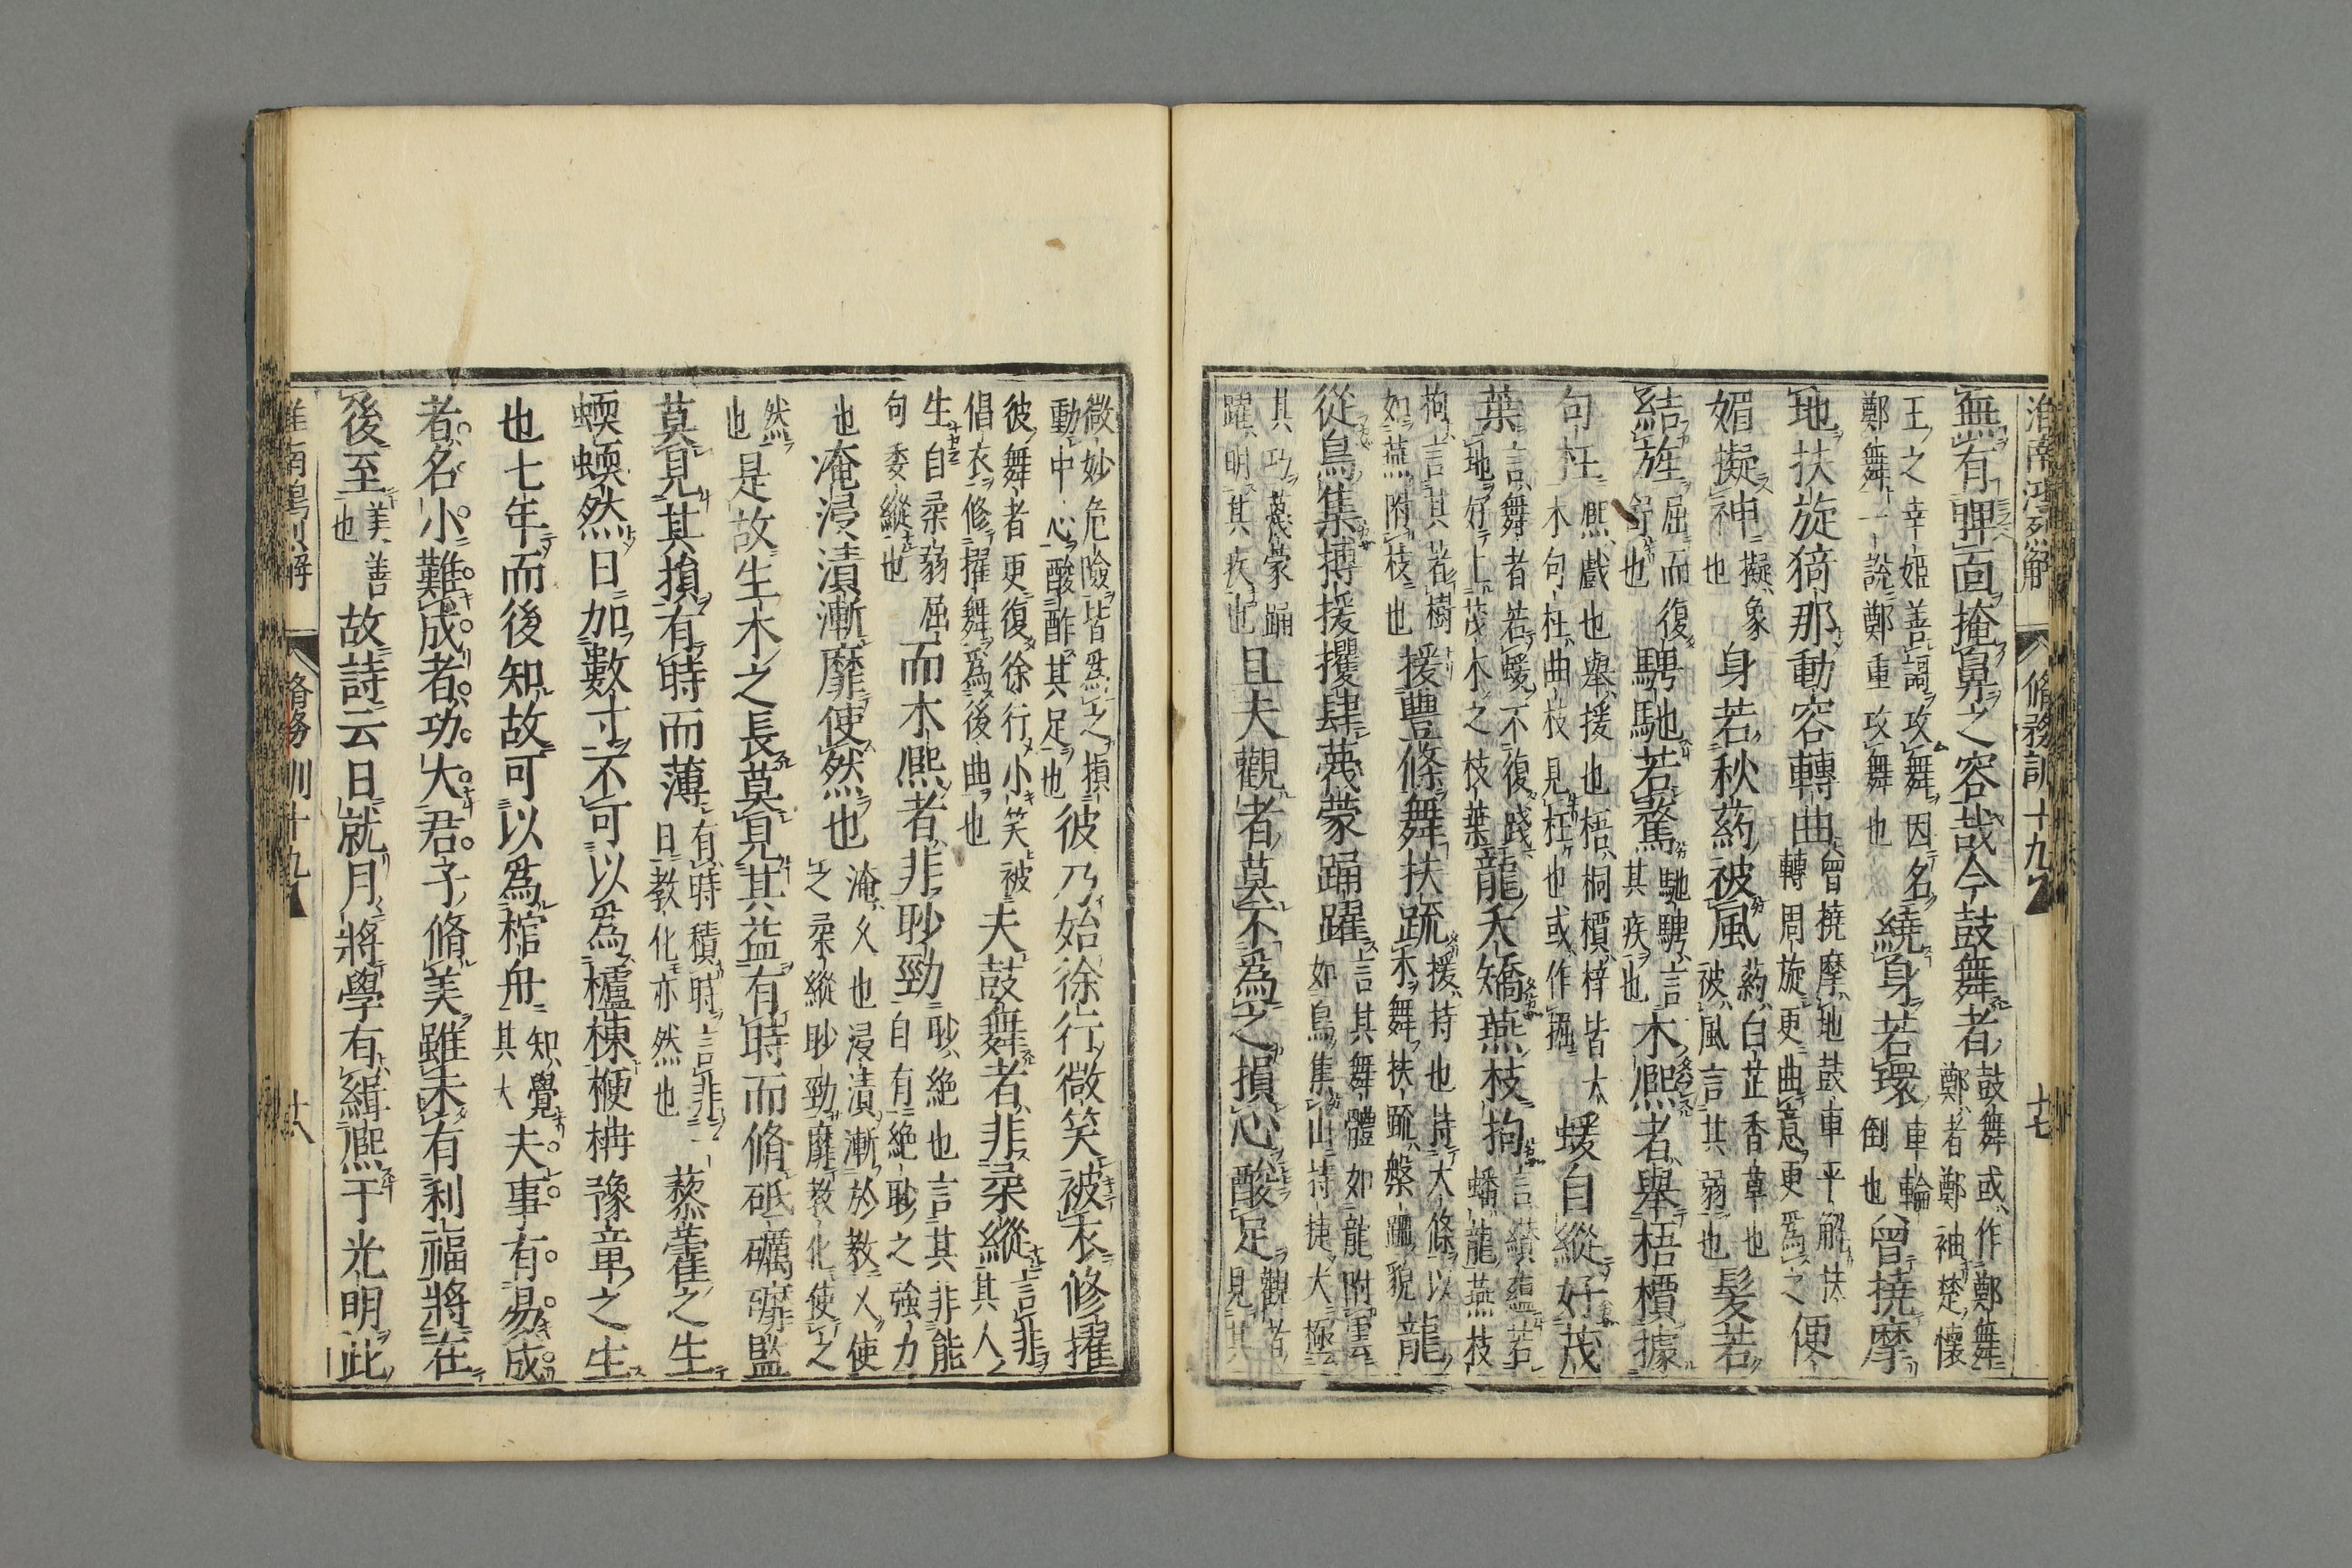 淮南鴻烈解 脩務訓十九 十七
無有睥面掩鼻之容哉今鼓舞者鼓舞或作鄭舞鄭者鄭袖楚懷
王之幸姬善謌攻舞因名鄭舞一說鄭重攻舞也繞身若環車輪倒也曾撓摩
地扶旋猗那動容轉曲曾撓摩地鼓車平解扶轉周旋更曲意更爲之便
媚擬神擬象也身若秋葯被風葯白芷香草也被風言其弱也髮若
結旌屈而復舒也騁馳若驁馳騁言其疾也木熈者舉梧檟據
句枉熈戲也舉援也梧桐檟梓皆大木句枉曲枝見枉也或作掘蝯自縱好茂
葉言舞者若蝯不復踐地好上茂木之枝葉龍夭矯燕枝拘言蟤蘊若蟠龍燕枝
拘言其若樹如燕附枝也援豐條舞扶疏援持也持大條以木舞扶疏槃跚貌龍
從鳥集搏援攫肆蔑蒙踊躍言其舞體如龍附雲如鳥集山持捷大極
其巧蔑蒙踊躍明其疾也且夫觀者莫不爲之損心酸足觀者見其
微妙危險皆爲之損動中心酸酢其足也彼乃始徐行微笑被衣修擢
彼舞者更復徐行小笑被倡衣修擢舞爲後曲也夫鼓舞者非柔縱言非其人
生自柔弱屈句委縱也而木熈者非眇勁眇絶也言其非能自有絶眇之強力
也淹浸漬漸靡使然也淹久也浸漬漸於教久使之柔縱眇勁靡教化使之
然也是故生木之長莫見其益有時而脩砥礪䃺監
莫見其損有時而薄有時積時言非一日教化亦然也藜藿之生
蝡蝡然日加數寸不可以爲櫨棟楩柟豫章之生
也七年而後知故可以爲棺舟知覺其大夫事有易成
者名小難成者功大君子脩美雖未有利福將在
後至美善也故詩云日就月將學有緝熈于光明此
淮南鴻烈解 脩務訓十九 十八